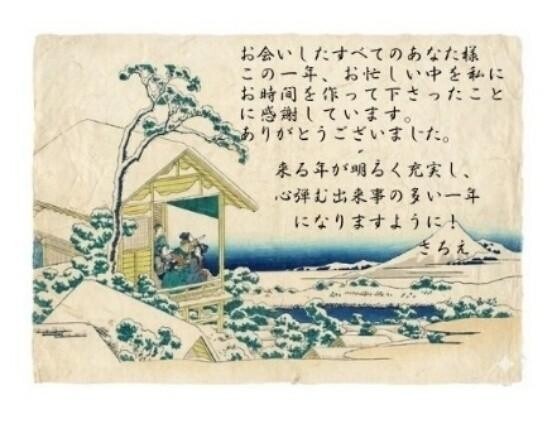 お会いしたすべてのあなた様
この一年、お忙しい中を私に
お時間を作って下さったこと
に感謝しています。
ありがとうございました。
来る年が明るく充実し、
心弾む出来事の多い一年
になりますように！
さちえ